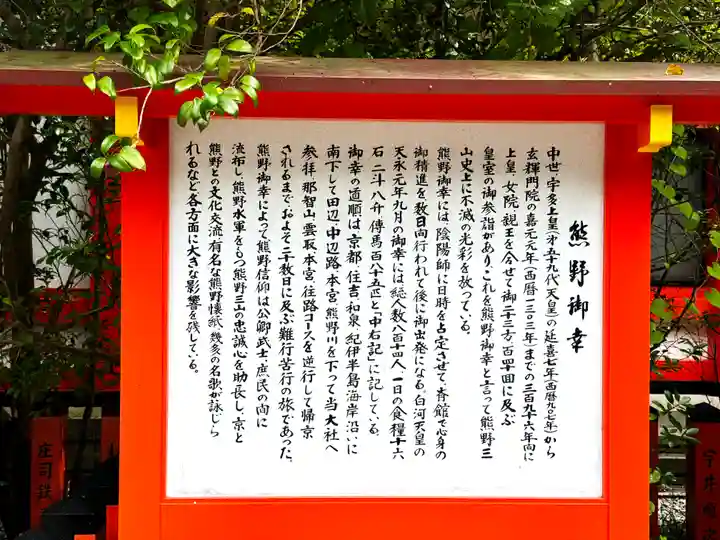 熊野御幸
中世、宇多上皇(第五十九代天皇)の延喜七年(西暦九〇七年)から
玄輝門院の嘉元元年(西暦一三〇三年)までの三百九十六年間に
上皇、女院、親王を合せて御二十三方、百四十回に及ぶ
皇室の御参詣があり、これを熊野御幸と言って熊野三
山史上に不滅の光彩を放っている。
熊野御幸には、陰陽師に日時を占定させて、斉館で心身の
御精進を数日間行われて後に御出発になる。白河天皇の
天永元年九月の御幸には総人数八百十四人、一日の食糧十六
石二斗八升、傳馬百八十五匹と「中右記」に記している。
御幸の道順は、京都、住吉、和泉、紀伊半島海岸沿いに
南下して田辺、中辺路、本宮、熊野川を下って当大社へ
参拝、那智山、雲取、本宮、往路コースを逆行して帰京
されるまで、およそ二十数日に及ぶ難行苦行の旅であった。
熊野御幸によって熊野信仰は公卿、武士、庶民の間に
流布し、熊野水軍をもつ熊野三山の忠誠心を助長し、京と
熊野との文化交流、有名な熊野懐紙、幾多の名歌が詠じら
れるなど各方面に大きな影響を残している。
庄司鉄